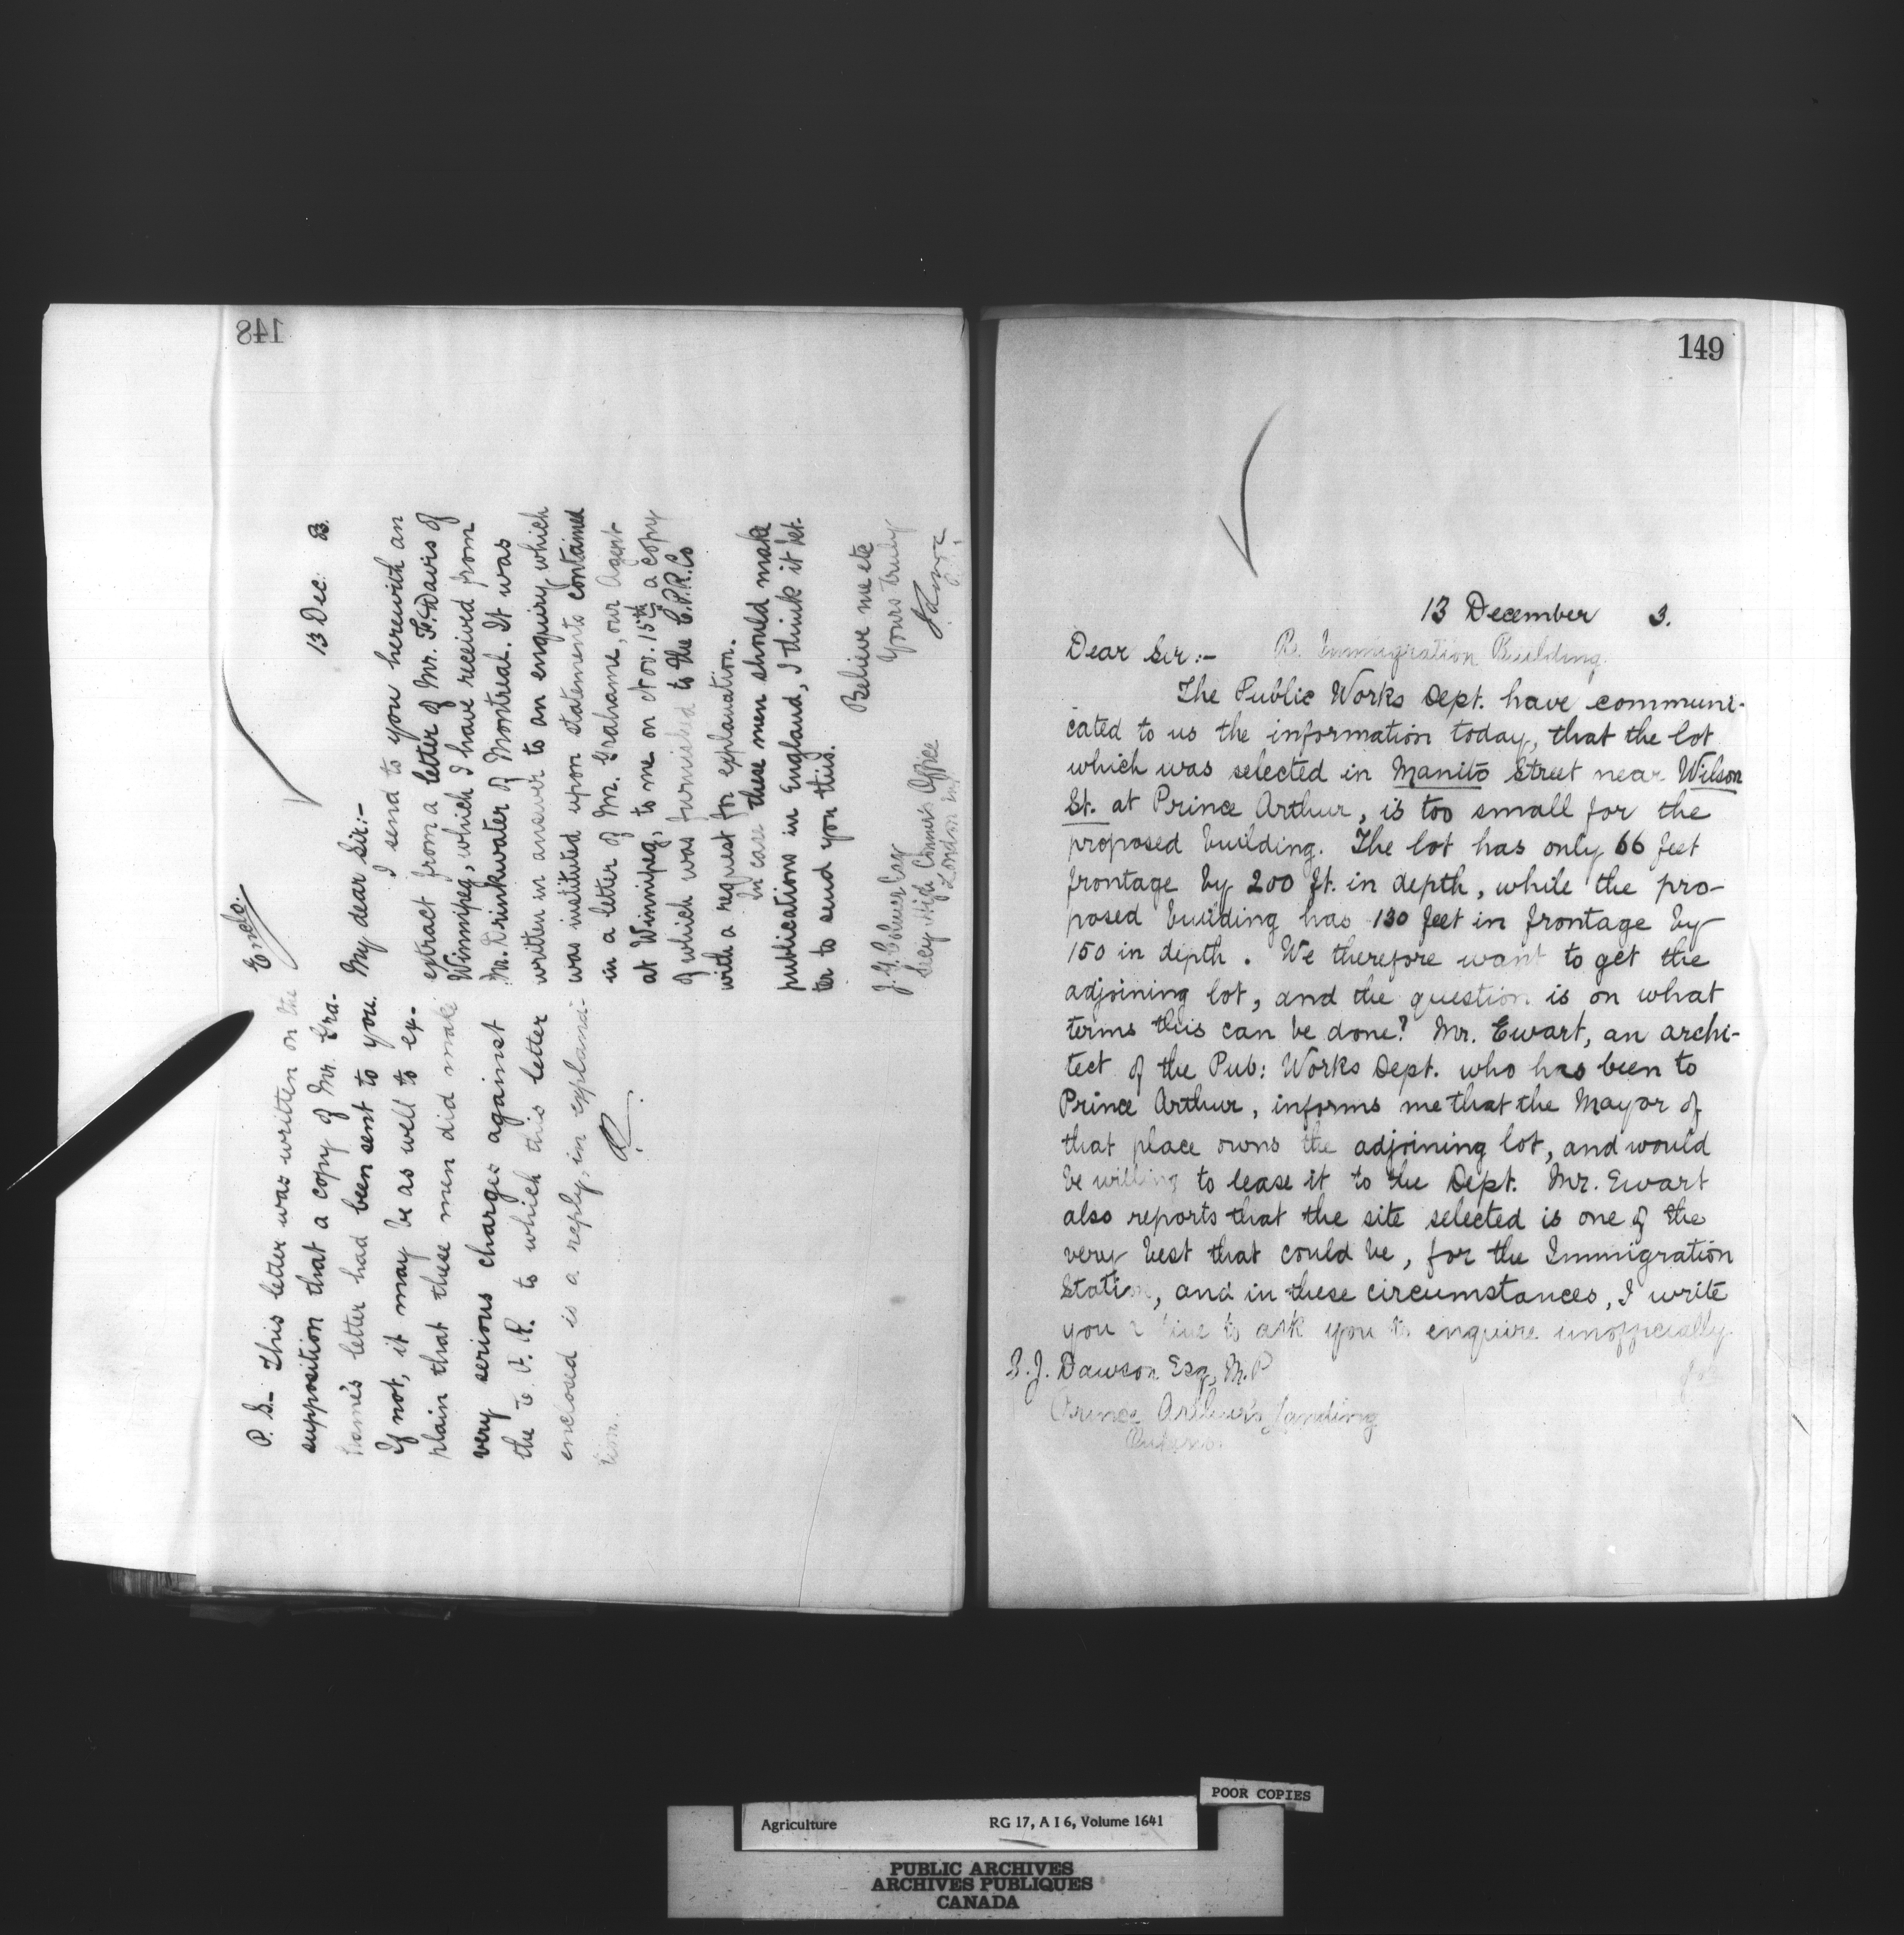 148
Enclo.
13 Dec. 83.
My dear Sir:-
I send to you herewith an
extract from a letter of Mr. F. Davis of
Winnipeg, which I have received from
Mr. Drinkwater of Montreal. It was
written in answer to an enquiry which
was instituted upon statements contained
in a letter of Mr. Grahame, our Agent
at Winnipeg, to me on Nov. 15th a copy
of which was furnished to the C.P.R. Co
with a request for explanation.
In case these men should make
publications in England, I think it bet-
ter to send you this.
Believe me etc
Yours truly
J. G. Colmer Esq
Secy High Commr's Office
London
P. S. This letter was written on the
supposition that a copy of Mr. Gra-
hame's letter had been sent to you.
If not, it may be as well to ex-
plain that these men did make
very serious charges against
the C. P. R. to which this letter
enclosed is a reply, in explana-
tion.
149
13 December 3.
Dear Sir:- R. Immigration Building.
The Public Works Dept. have communi-
cated to us the information today, that the lot
which was selected in Manito Street near Wilson
St. at Prince Arthur, is too small for the
proposed building. The lot has only 66 feet
frontage by 200 ft. in depth, while the pro-
posed building has 130 feet in frontage by
150 in depth. We therefore want to get the
adjoining lot, and the question is on what
terms this can be done? Mr. Ewart, an archi-
tect of the Pub: Works Dept. who has been to
Prince Arthur, informs me that the Mayor of
that place owns the adjoining lot, and would
be willing to lease it to the Dept. Mr. Ewart
also reports that the site selected is one of the
very best that could be, for the Immigration
Station, and in these circumstances, I write
you a line to ask you to enquire unofficially
S. J. Dawson Esq, M.P
Prince Arthur's Landing
Ontario
POOR COPIES
Agriculture RG 17, A I 6, Volume 1641
PUBLIC ARCHIVES
ARCHIVES PUBLIQUES
CANADA